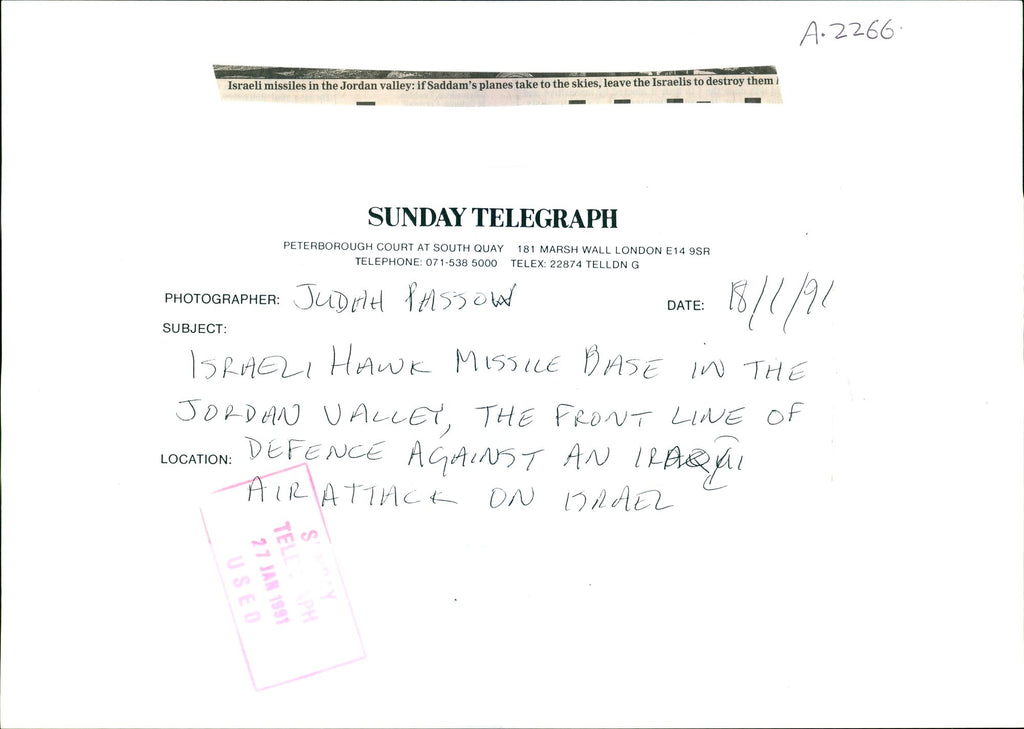 A.2266.
Israeli missiles in the Jordan valley: if Saddam's planes take to the skies, leave the Israelis to destroy them
SUNDAY TELEGRAPH
PETERBOROUGH COURT AT SOUTH QUAY 181 MARSH WALL LONDON E14 9SR
TELEPHONE: 071-538 5000 TELEX: 22874 TELLDN G
PHOTOGRAPHER: JUDAH PASSOW DATE: 18/1/91
SUBJECT:
ISRAELI HAWK MISSILE BASE IN THE
JORDAN VALLEY, THE FRONT LINE OF
LOCATION: DEFENCE AGAINST AN IRAQI
AIR ATTACK ON ISRAEL
TELEGRAPH
27 JAN 1991
USED